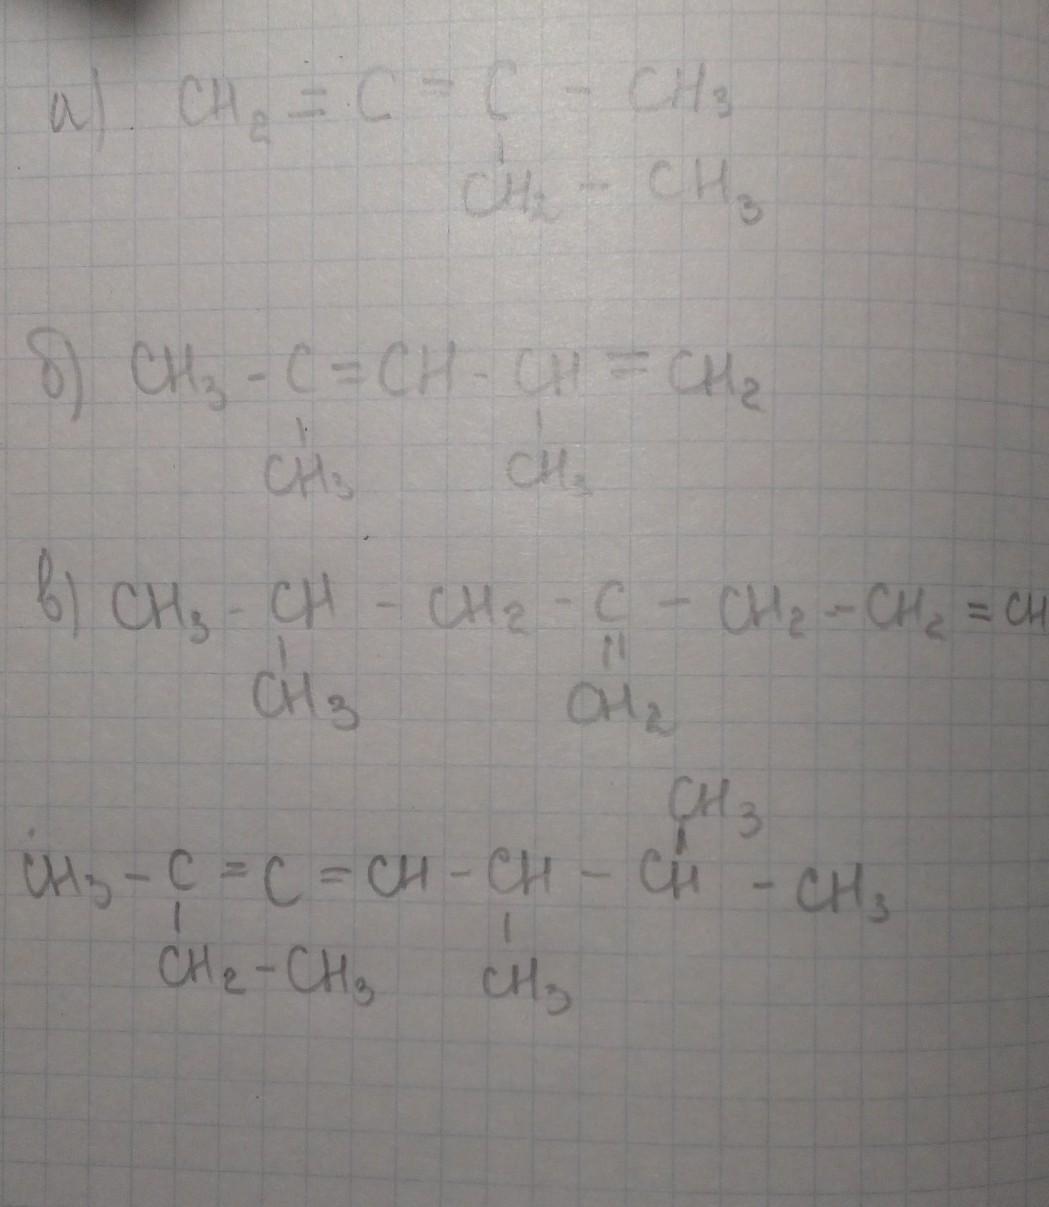 а) CH₂ = C = C - CH₃
CH₂ - CH₃
б) CH₃ - C = CH - CH = CH₂
CH₃ CH₃
в) CH₃ - CH - CH₂ - C - CH₂ - CH₂ = CH
CH₃ CH₂
CH₃
CH₃ - C = C = CH - CH - CH - CH₃
CH₂ - CH₃ CH₃